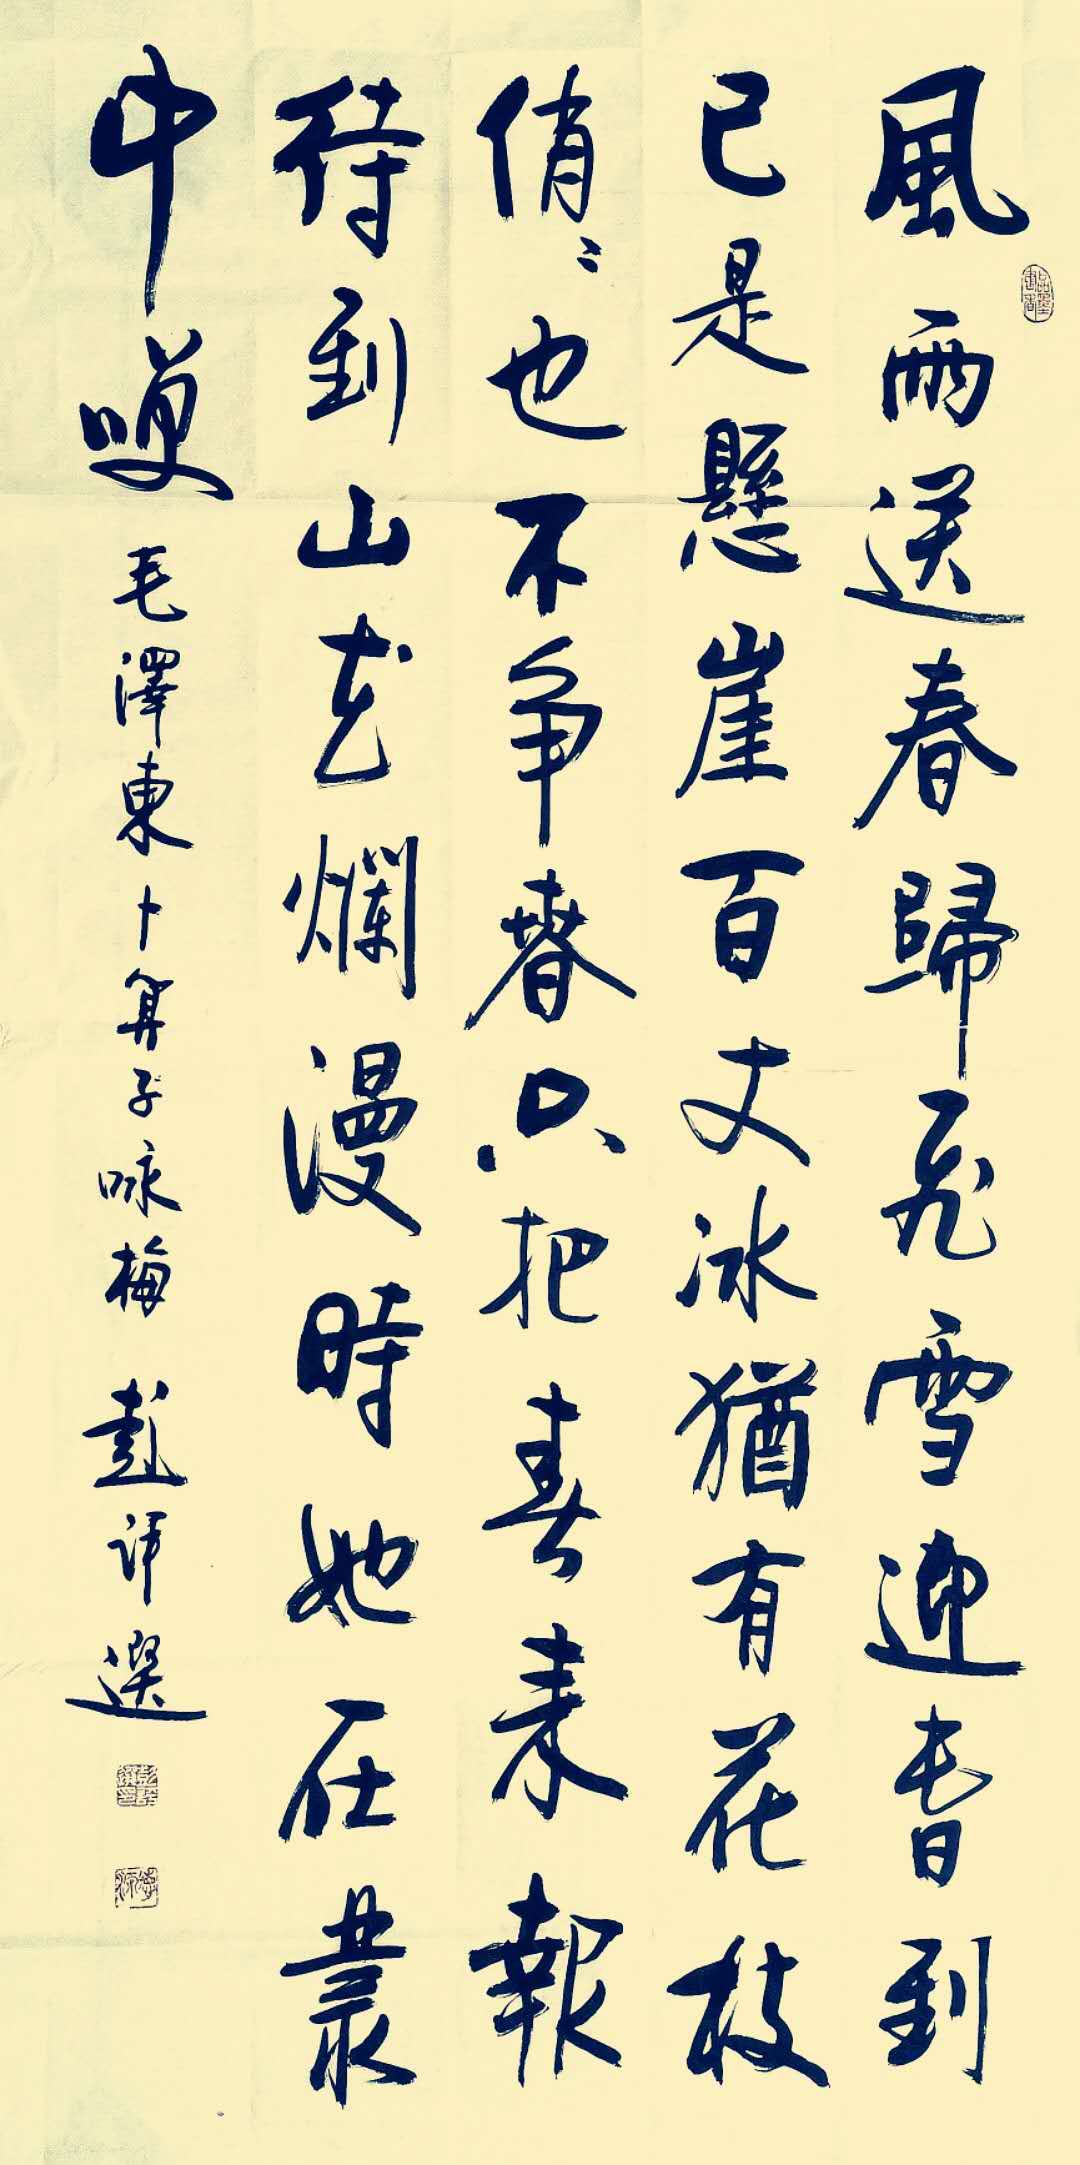 風雨送春歸飛雪迎春到
已是懸崖百丈冰猶有花枝
俏〻也不争春只把春来報
待到山花爛漫時她在叢
中笑 毛澤東卜算子咏梅 彭評選